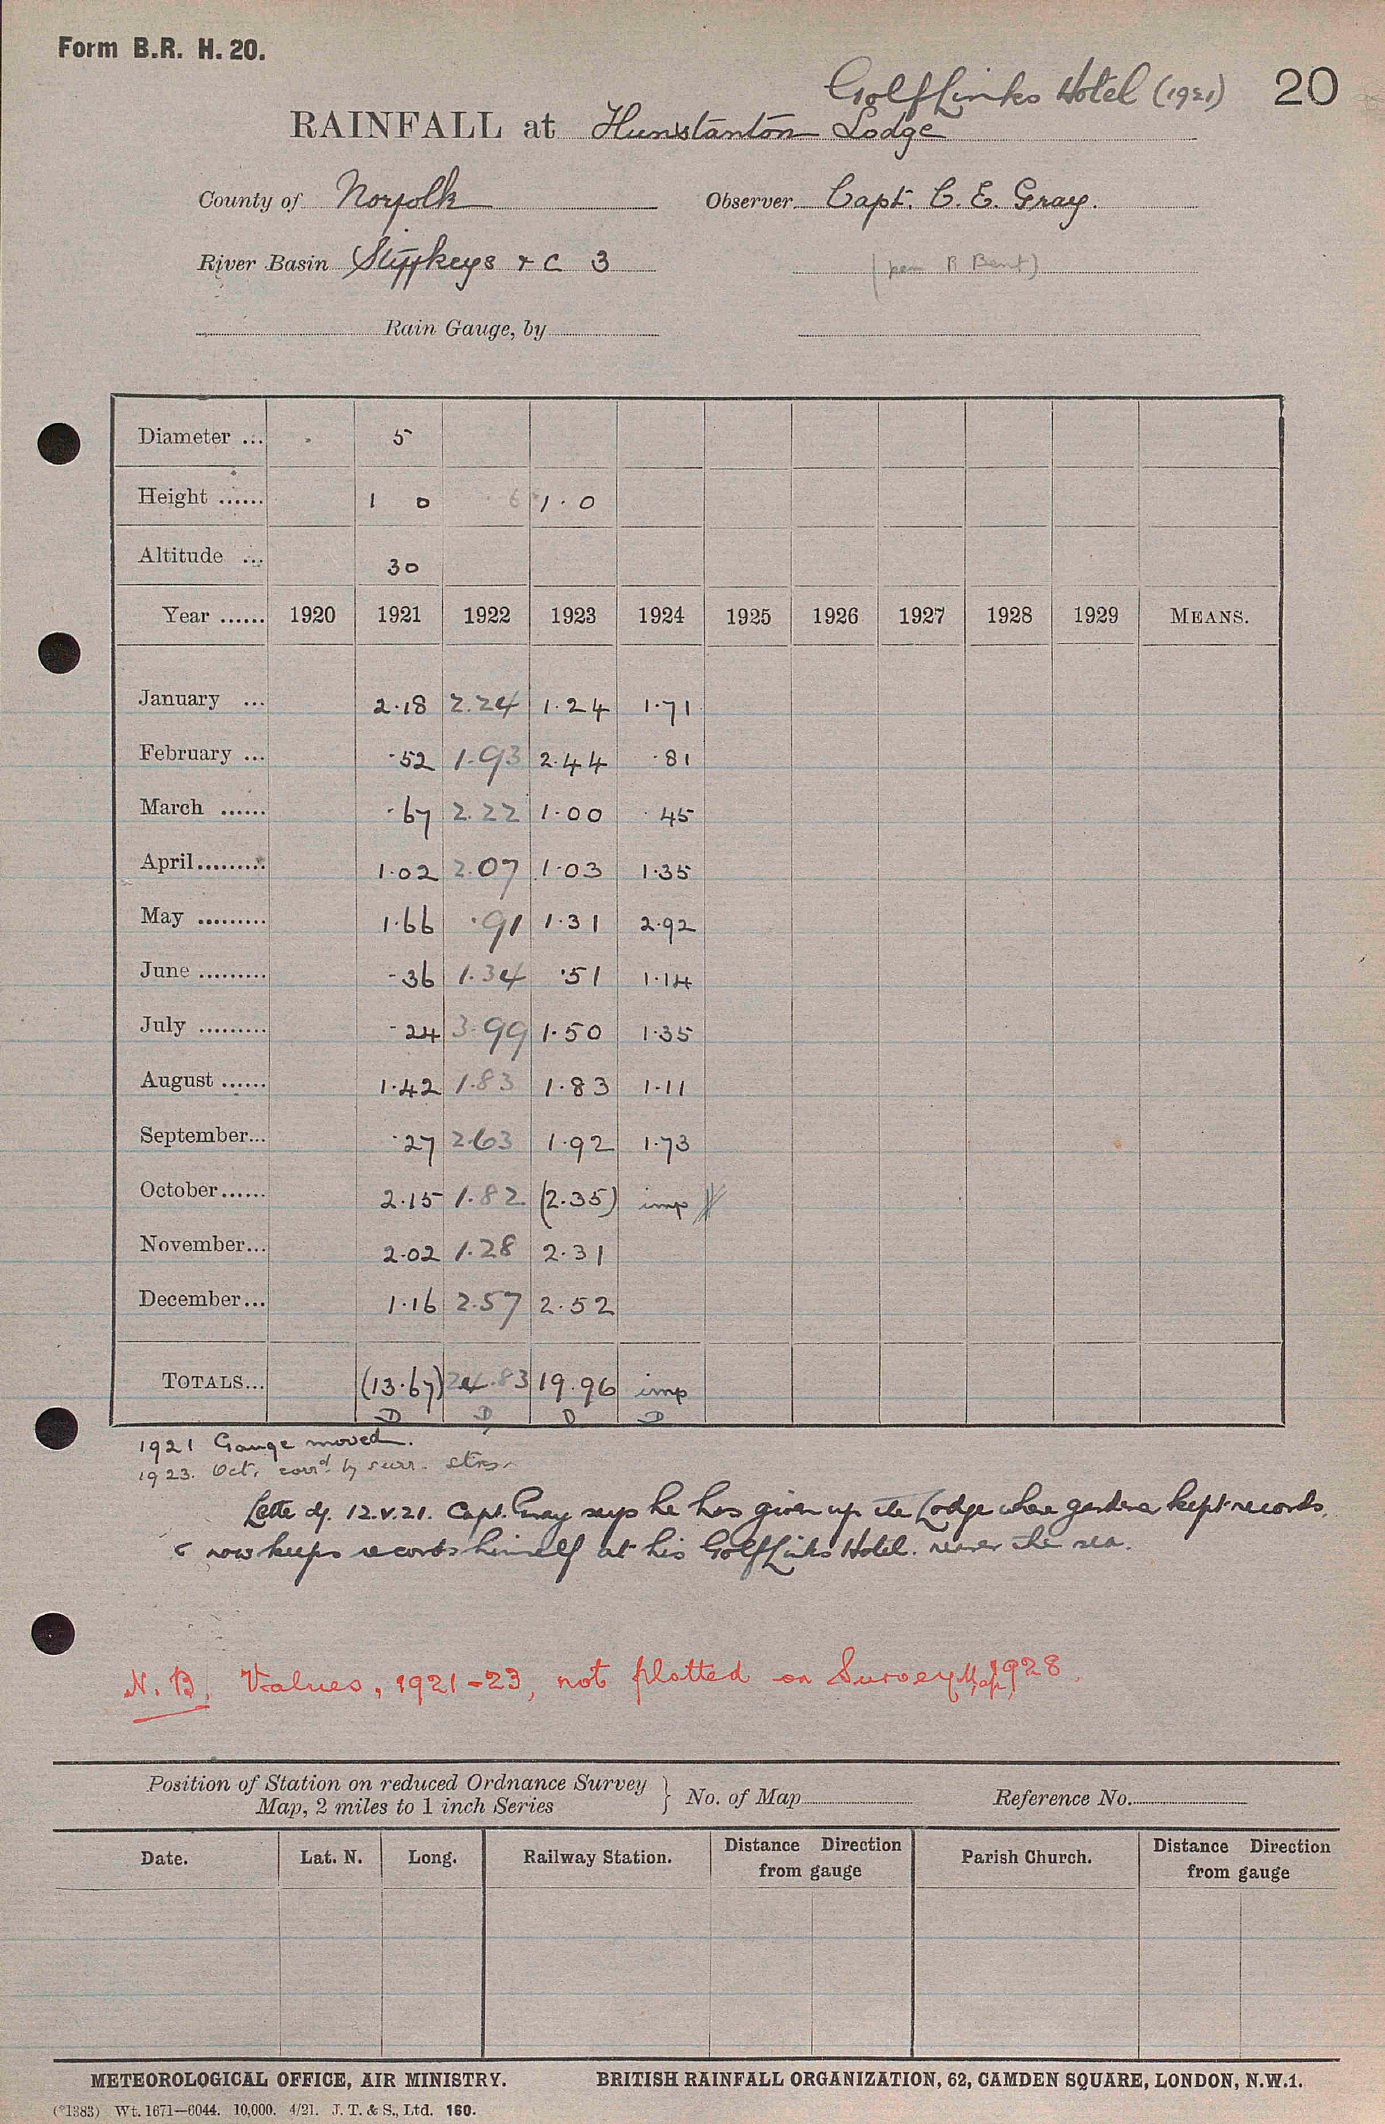 Form B.R. H. 20.
Golf Links Hotel (1921) 20
RAINFALL at Hunstanton Lodge
County of Norfolk Observer Capt. C. E. Gray.
River Basin Stiffkeys & C 3 (per R Bent)
Rain Gauge, by
Diameter ... 5
Height ...... 1 0 6 1.0
Altitude ... 30
Year ...... 1920 1921 1922 1923 1924 1925 1926 1927 1928 1929 MEANS.
January ... 2.18 2.24 1.24 1.71
February ... .52 1.93 2.44 .81
March ...... .67 2.22 1.00 .45
April......... 1.02 2.07 1.03 1.35
May ......... 1.66 .91 1.31 2.92
June ......... .36 1.34 .51 1.14
July ......... .24 3.99 1.50 1.35
August ...... 1.42 1.83 1.83 1.11
September... .27 2.63 1.92 1.73
October...... 2.15 1.82 (2.35) imp
November... 2.02 1.28 2.31
December... 1.16 2.57 2.52
TOTALS... (13.67) 24.83 19.96 imp
D D D D
1921 Gauge moved.
1923. Oct. corrd. by surr. stns.
Letter of. 12.V.21. Capt. Gray says he has given up the Lodge where gardener kept records,
& now keeps records himself at his Golf Links Hotel. nearer the sea.
N.B. Values, 1921-23, not plotted on Survey Map, 1928.
Position of Station on reduced Ordnance Survey
Map, 2 miles to 1 inch Series } No. of Map Reference No.
Date. Lat. N. Long. Railway Station. Distance Direction from gauge Parish Church. Distance Direction from gauge
METEOROLOGICAL OFFICE, AIR MINISTRY. BRITISH RAINFALL ORGANIZATION, 62, CAMDEN SQUARE, LONDON, N.W.1.
(*1383) Wt. 1671—6044. 10,000. 4/21. J. T. & S., Ltd. 160.